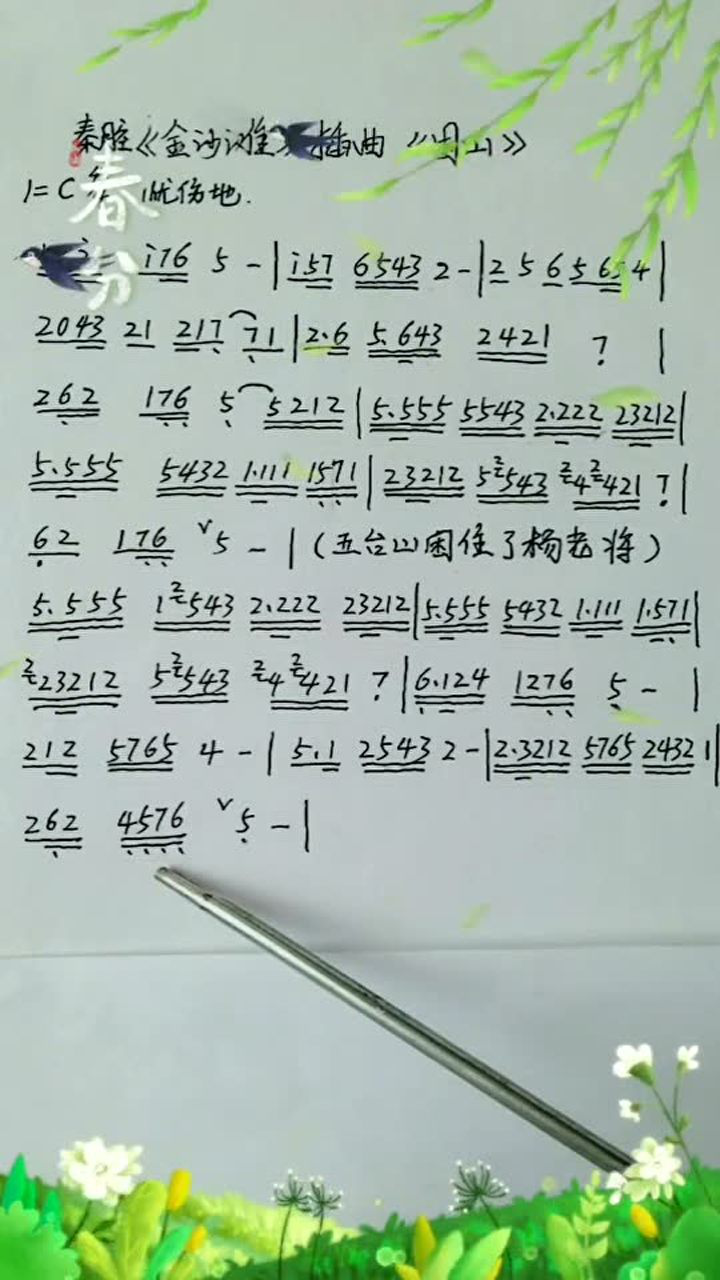 秦腔《金沙滩》插曲《困山》
春分
1=C 忧伤地.
i76 5 - | i57 6543 2 - | 2 5 6 5 654 |
2043 21 217 71 | 2.6 5.643 2421 ? |
262 176 5 5212 | 5.555 5543 2.222 23212 |
5.555 5432 1.111 1571 | 23212 5²543 ²4²421 ? |
62 176 ᵛ5 - | (五台山困住了杨老将)
5.555 1²543 2.222 23212 | 5.555 5432 1.111 1.571 |
²23212 5²543 ²4²421 ? | 6.124 1276 5 - |
212 5765 4 - | 5.1 2543 2 - | 2.3212 5765 2432 1 |
262 4576 ᵛ5 - |